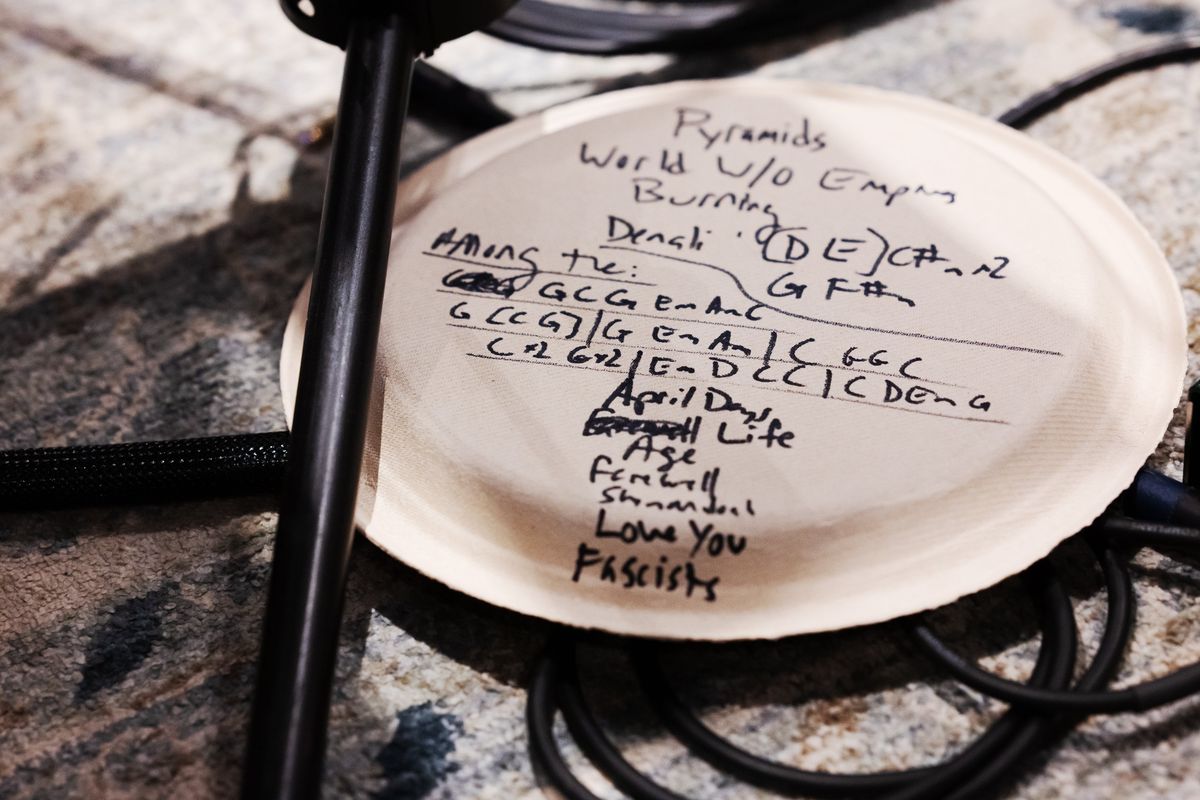 Pyramids
World W/O Empires
Burning
Denali : (D E) C#m x2
G F#m
Among the:
G C G Em Am C
G (C G) | G Em Am | C G G C
C x2 G x2 | Em D C C | C D Em G
April Days
Life
Age
Farewell
Love You
Fascists